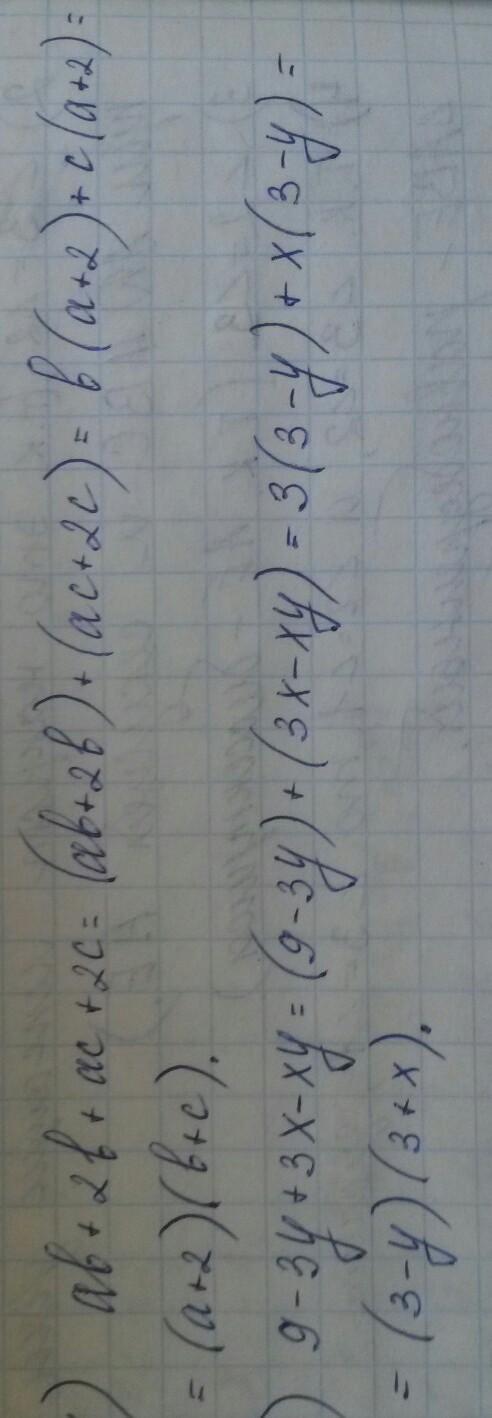 ) ab + 2b + ac + 2c = (ab + 2b) + (ac + 2c) = b (a + 2) + c (a + 2) =
= (a + 2) (b + c).
) 9 - 3y + 3x - xy = (9 - 3y) + (3x - xy) = 3 (3 - y) + x (3 - y) =
= (3 - y) (3 + x).